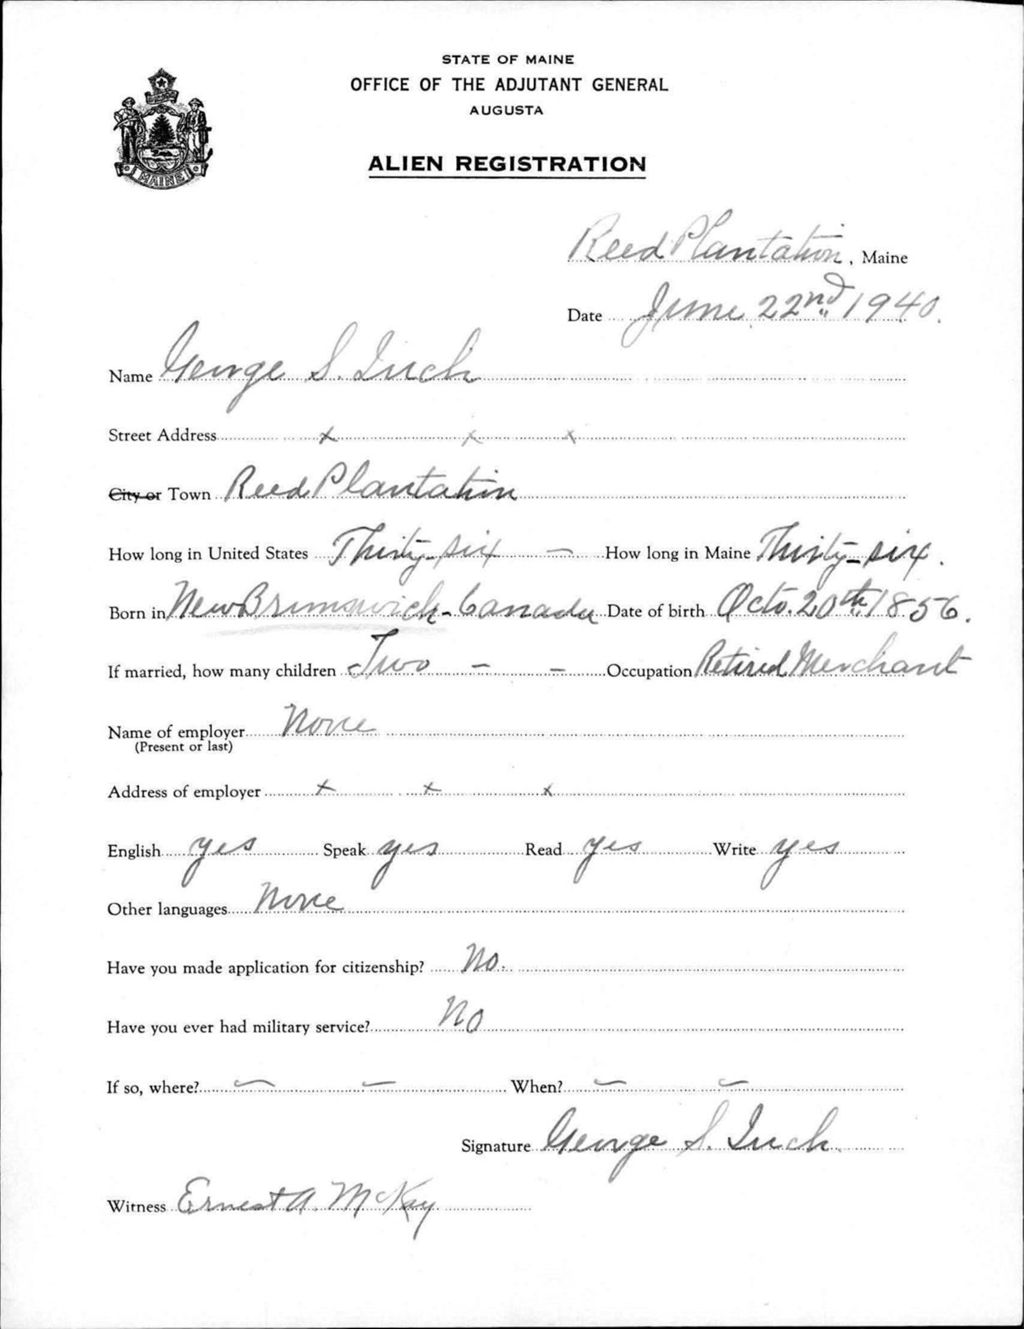 STATE OF MAINE
OFFICE OF THE ADJUTANT GENERAL
AUGUSTA
ALIEN REGISTRATION
MAINE
Reed Plantation, Maine
Date June 22nd, 1940.
Name George S. Inch
Street Address x x x
City or Town Reed Plantation
How long in United States Thirty-six — How long in Maine Thirty-six.
Born in New Brunswick-Canada Date of birth Octo. 20th, 1856.
If married, how many children Two — — Occupation Retired Merchant
Name of employer None
(Present or last)
Address of employer x x x
English yes Speak yes Read yes Write yes
Other languages None
Have you made application for citizenship? No.
Have you ever had military service? No
If so, where? — — When? — —
Signature George S. Inch.
Witness Ernest A. McKay